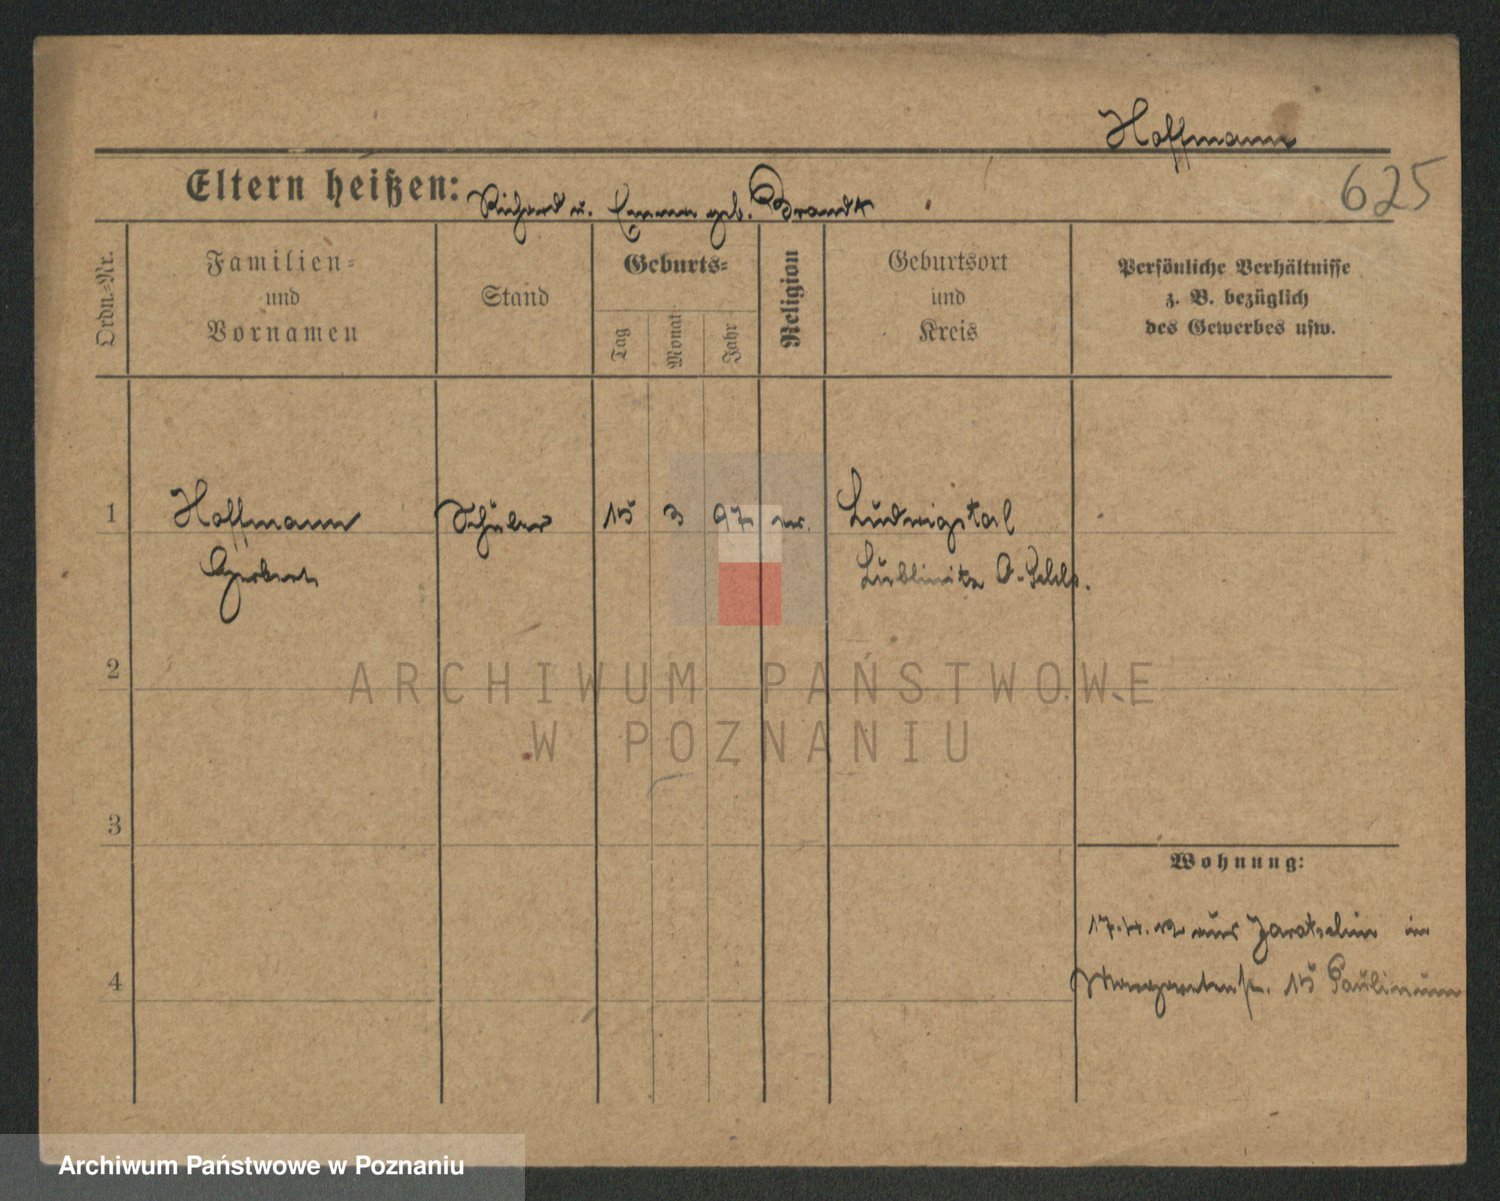 Hoffmann
625
Eltern heißen: Richard u. Emma geb. Brandt
Ordn.-Nr.
Familien-
und
Vornamen
Stand
Geburts-
Tag
Monat
Jahr
Religion
Geburtsort
und
Kreis
Persönliche Verhältnisse
z. B. bezüglich
des Gewerbes usw.
1 Hoffmann Schüler 15 3 97 ev. Ludwigstal
Lublinitz O-Schls.
2
ARCHIWUM PAŃSTWOWE
W POZNANIU
3
Wohnung:
17.4.12 aus Jarotschin in
4
Margaretenstr. 15 Paulinum
Archiwum Państwowe w Poznaniu